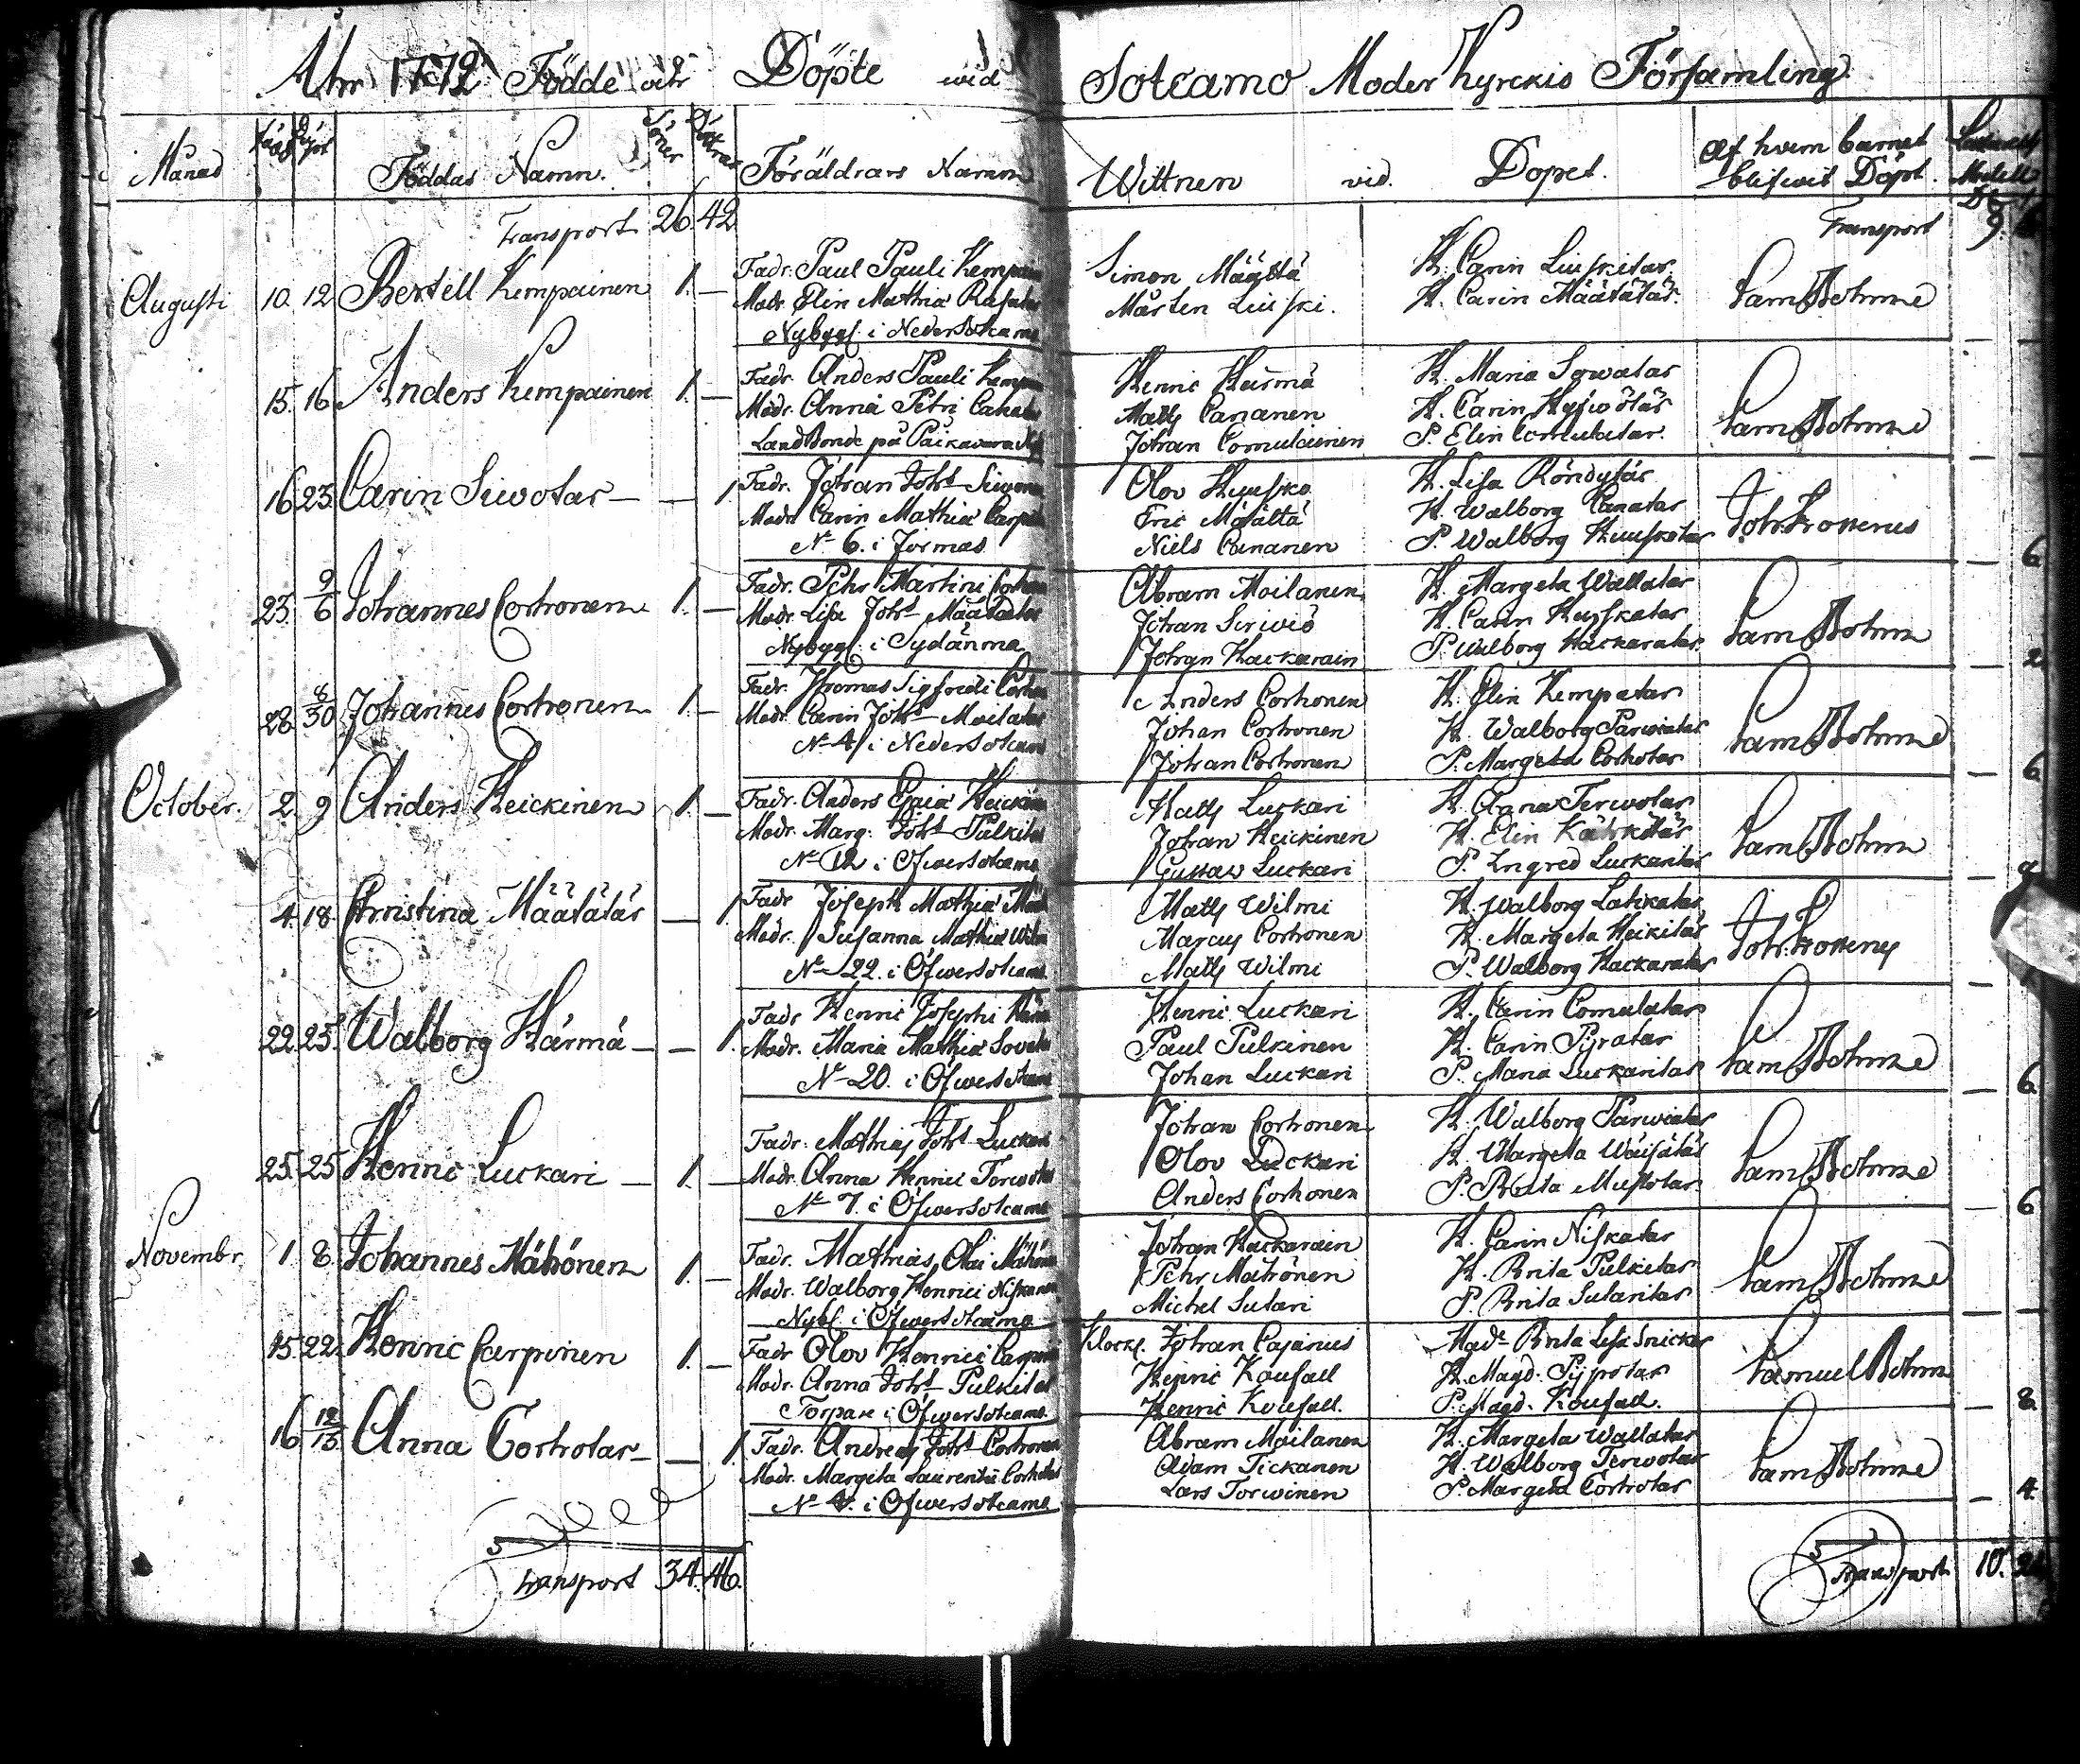 Ahr 1772 Födde och Döpte wid Sotcamo Moder Kyrckio Församling.
Månad Födde Döpt Föddas Namn. Söner Döttrar Föräldrars Namn Wittnen vid. Dopet. Af hvem barnet blifwit Döpt.
Transport 26. 42 Transport 9.
Augusti 10. 12 Bertell Kempainen 1. —
Fadr. Paul Pauli Kempain
Modr. Elin Mathiæ
Nybygg. i Nedersotkamo
Simon Määttä
Mårten Leifski.
H. Carin
H. Carin Määtätär.
Sam Bohme
15. 16 Anders Kempainen 1. —
Fadr. Anders Pauli Kempa
Modr. Anna Petri Canatar
LandBonde på Paikavara
Henric Härmä
Matts Cananen
Johan Comulainen
H. Maria Sowatar
H. Carin
P. Elin Comulatar.
Sam Bohme
16. 23. Carin Siwotar — — 1
Fadr. Johan Joh:s Siwonen
Modr. Carin Mathiæ Carpi
N:o 6. i Jormas
Olov Huusko
Eric Määttä
Niels Cananen
H. Lisa Röndytär
H. Walborg Canatar
P. Walborg Huuskotar
6
23. 9/6 Johannes Corhonen 1. —
Fadr. Pehr Martini Corhon
Modr. Lisa Joh:s Määtätar
Nybygg. i Sydänma
Abram Moilanen
Johan Sirwiö
Johan Hackarain
H. Margeta Wallatar
H. Carin Huskatar
P. Walborg Hackaratar
Sam Bohm
2
28. 8/30 Johannes Corhonen 1. —
Fadr. Thomas Sigfredi Corhon
Modr. Carin Joh:s Moilatar
N:o 4 i Nedersotcam
Anders Corhonen
Johan Corhonen
Johan Corhonen
H. Elin Kempatar
H. Walborg Parwiatar
P. Margeta Corhotar
Sam Bohme
6
October. 2. 9 Anders Heickinen 1. —
Fadr. Anders Heickin
Modr. Marg: Joh:s Pulkitar
N:o 12 i Öfwersotcamo
Matts Luckari
Johan Heickinen
Gustaw Luckari
H. Anna Terwotar
H. Elin Kähkötär
P. Ingred Luckaritar
Sam Bohm
4. 18 Christina Määtätär — 1
Fadr Joseph Mathiæ Määt
Modr. Susanna Mathiæ Wilm
N:o 22. i Öfwersotcamo
Matts Wilmi
Marcus Corhonen
Matts Wilmi
H. Walborg Latikatar
H. Margeta Heikitär
P. Walborg Hackaratar
22. 25. Walborg Härmä — — 1.
Fadr Henric Josephi Härm
Modr. Maria Mathiæ Sovatar
N:o 20. i Öfwersotcam
Henric Luckari
Paul Pulkinen
Johan Luckari
H. Carin Comulatar
H. Carin Pyratar
P. Maria Luckaritar
Sam Bohme
6
25. 25 Henric Luckari — 1. —
Fadr. Mathias Joh:s Luckari
Modr. Anna Henrici Torwotar
N:o 7. i Öfwersotcamo
Johan Corhonen
Olov Luckari
Anders Corhonen
H. Walborg Parwiatar
H. Margeta Wäisätär
P. Brita Mustotar.
Sam Bohme
6
Novembr. 1 8. Johannes Mähönen 1. —
Fadr. Mathias Olai Mähön
Modr. Walborg Henrici Niskanen
Nybl. i Öfwersotcamo
Johan Hackarain
Pehr Mähönen
Michel Sutari
H. Carin Niskatar
H. Brita Pulkitar
P. Brita Sutaritar
Sam Bohme
15. 22. Henric Carpinen 1. —
Fadr Olov Henrici Carpin
Modr. Anna Joh:s Pulkitar
Torpare i Öfwersotcamo
Klock. Johan Cajanus
Henric Kaufall
Henric Kaufall.
Mad:e Brita Lisa Snicker
H. Magd.
P. Magd. Kaufall.
Samuel Bohm
8
16 12/15 Anna Corhotar — — 1
Fadr. Andreas Joh:s Corhonen
Modr. Margeta Laurentii Corhotar
N:o 4. i Öfwersotcamo
Abram Moilanen
Adam Tickanen
Lars Torwinen
H. Margeta Wallatar
H. Walborg Terwotar
P. Margeta Corhotar
Sam Bohme
4.
Transport 34. 46. Transport 10.